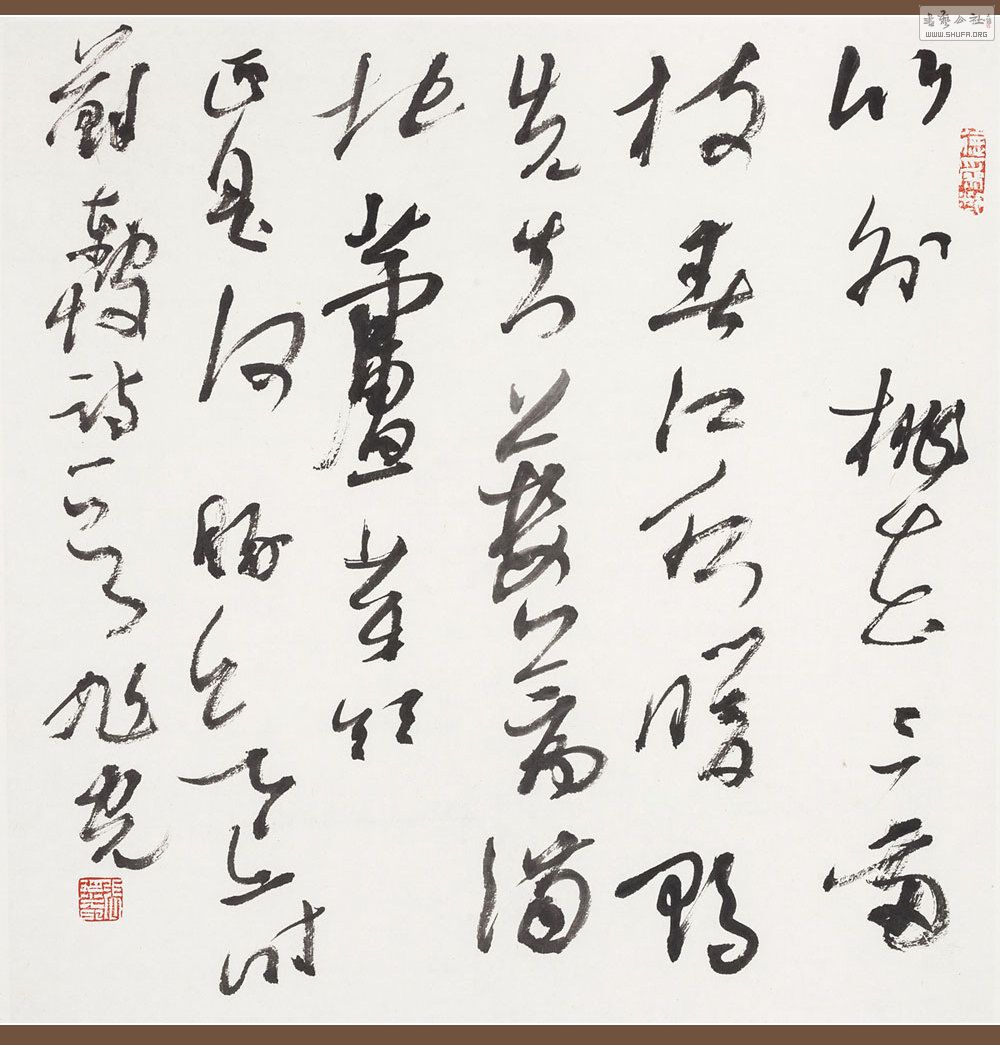 书藝公社
WWW.SHUFA.ORG
竹外桃花三兩
枝春江水暖鴨
先知蔞蒿滿
地蘆芽短
正是河豚欲上時
蘇東坡詩一首旭光